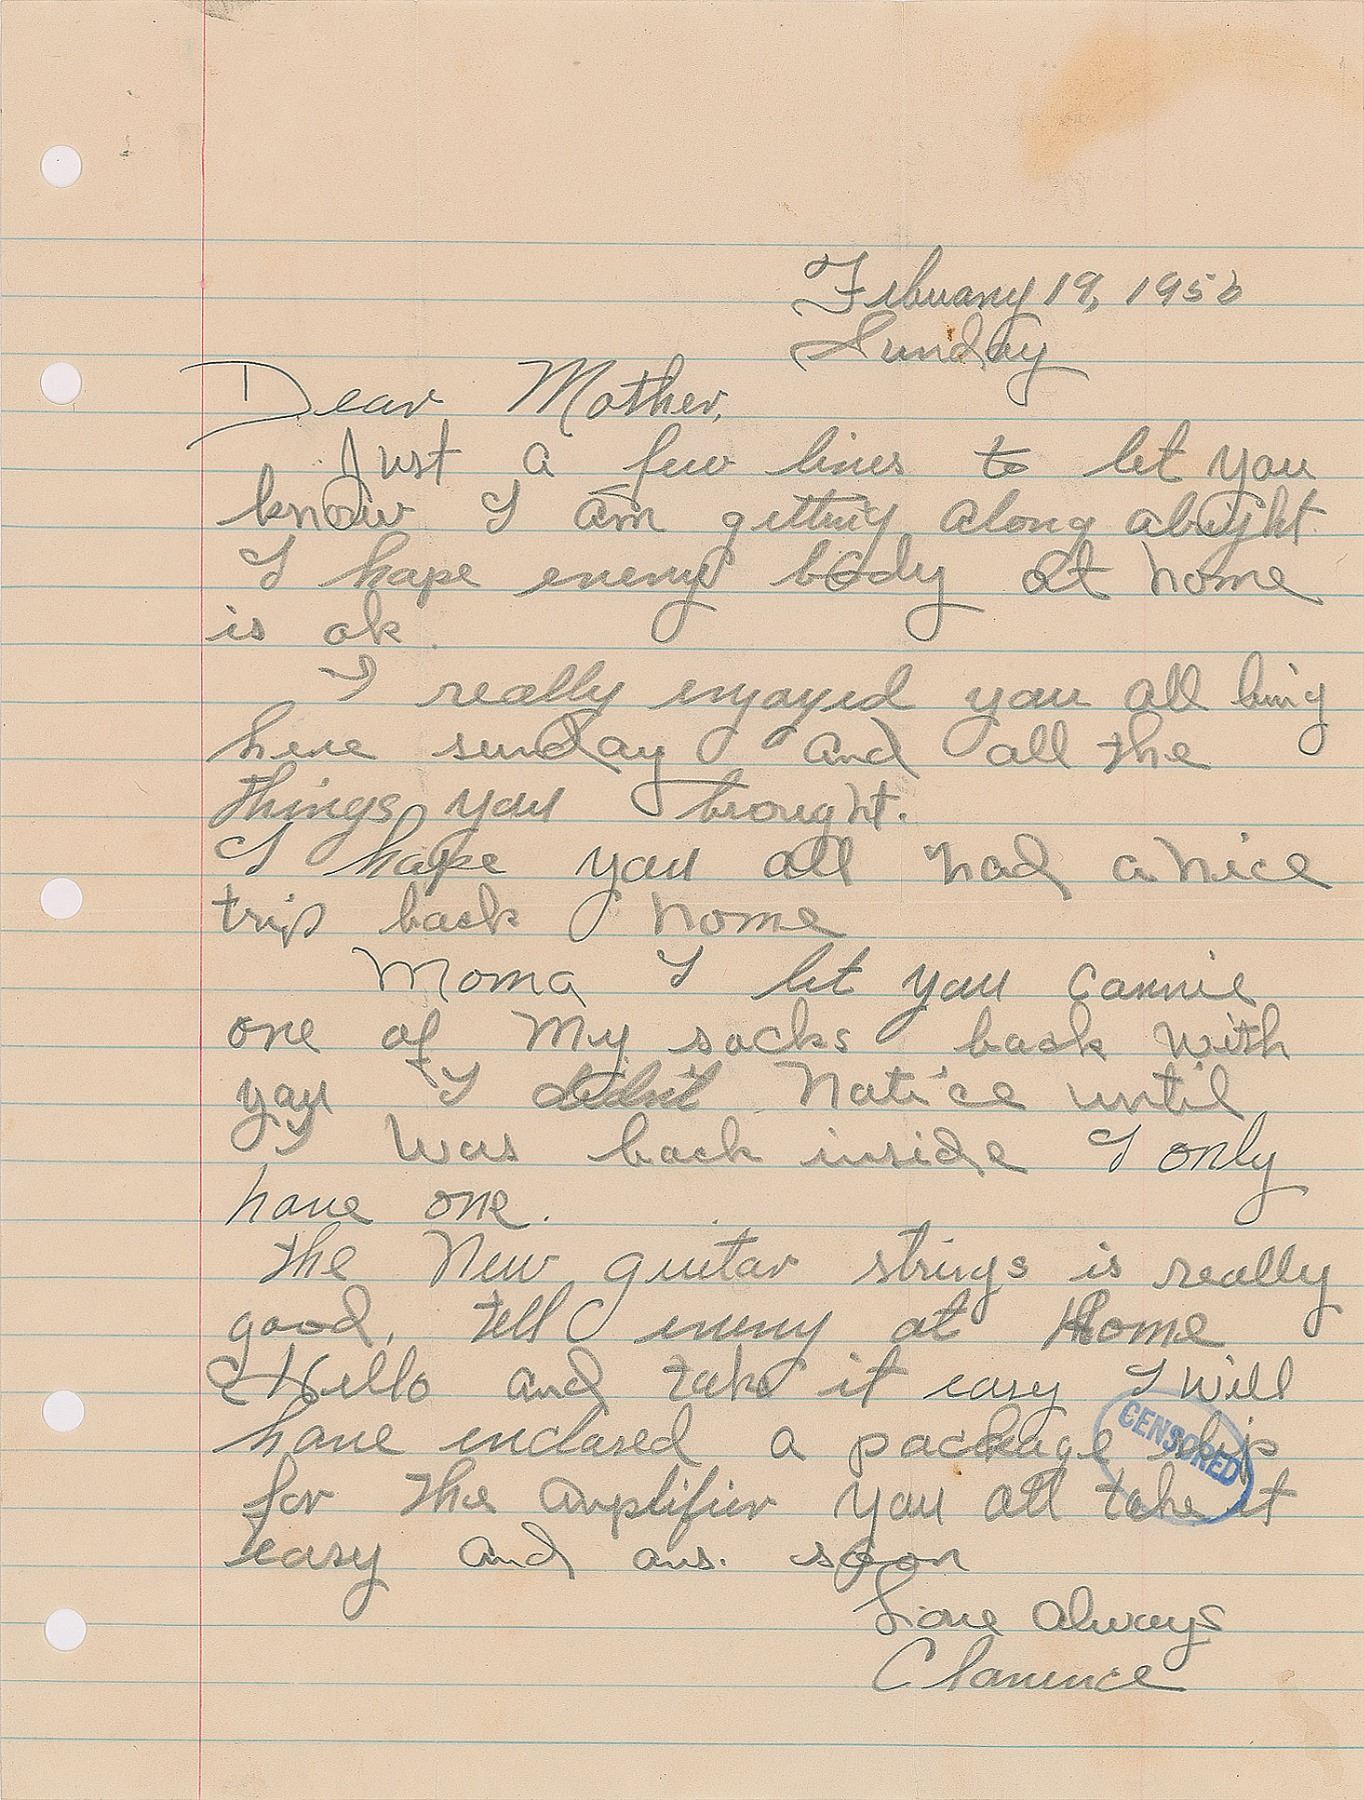 February 19, 1956
Sunday
Dear Mother,
Just a few lines to let you
know I am getting along alright
I hope every body at home
is ok
I really enjoyed you all being
here sunday and all the
things you brought.
I hope you all had a nice
trip back home
Moma I let you carrie
one of my socks back with
you I didn't notice until
I was back inside I only
have one.
the New guitar strings is really
good, tell every at Home
Hello and take it easy I will
have enclosed a package slip
for the amplifier you all take it
easy and ans. soon
Love always
Clarence
CENSORED